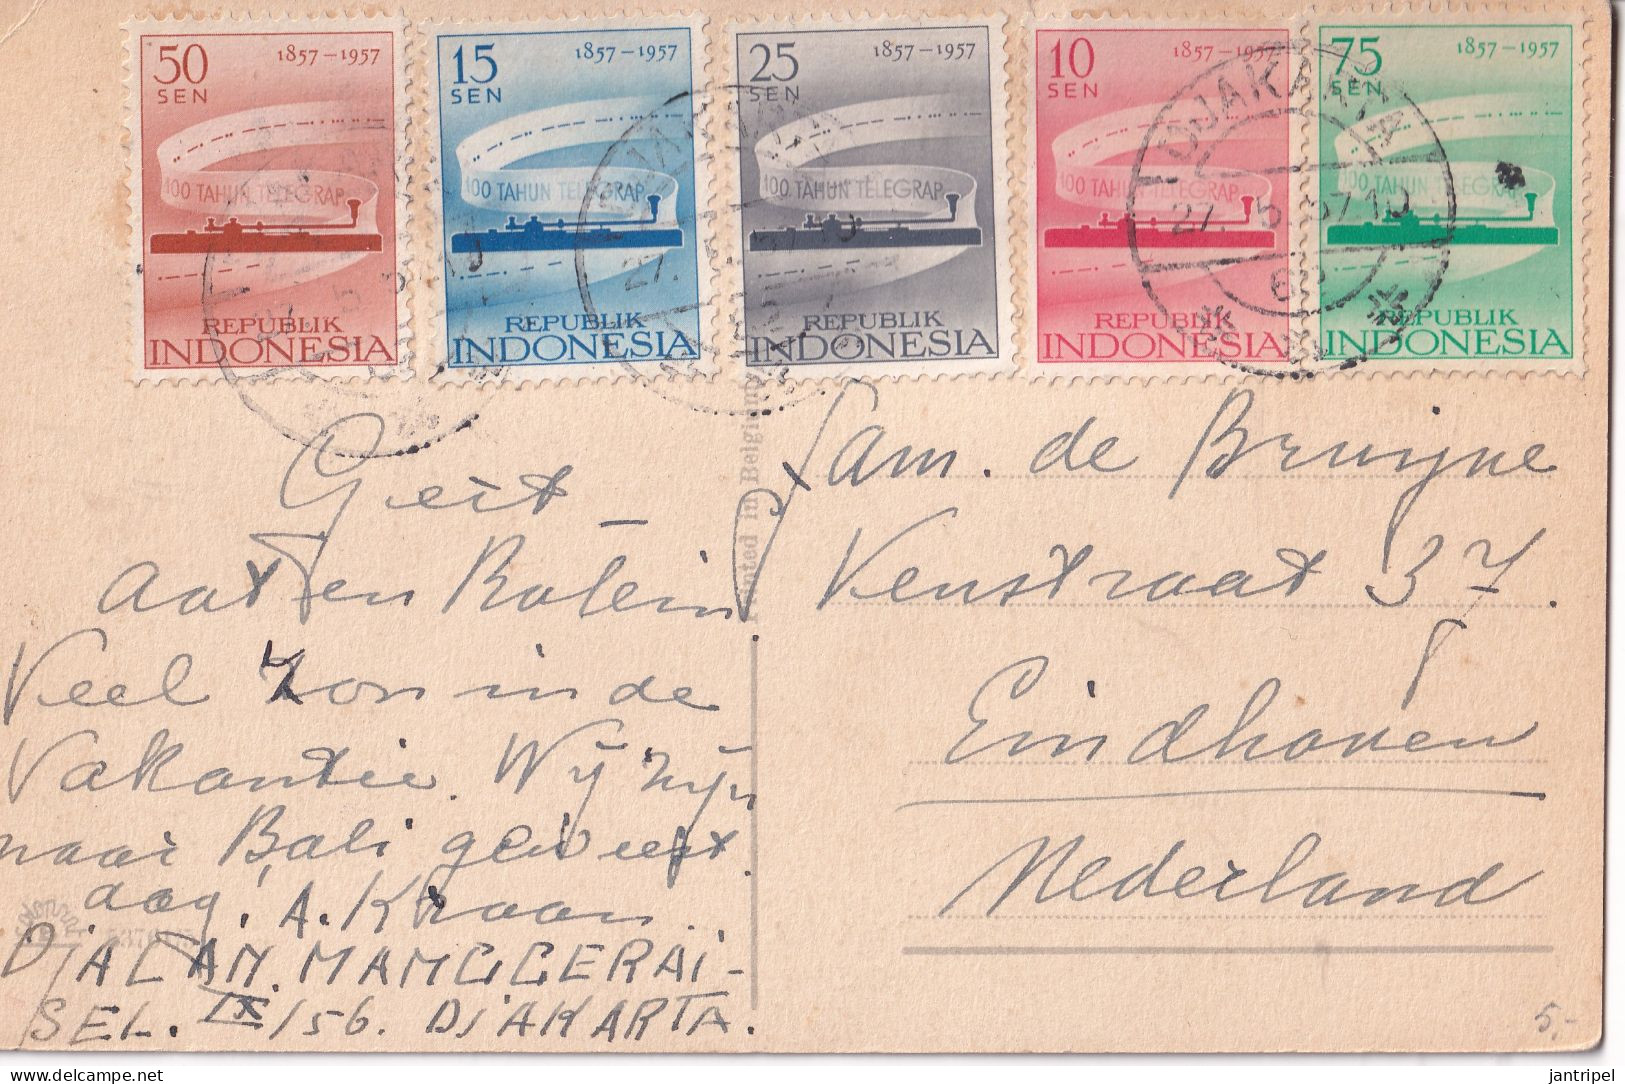 50 SEN 1857-1957
100 TAHUN TELEGRAP
REPUBLIK
INDONESIA
15 SEN 1857-1957
100 TAHUN TELEGRAP
REPUBLIK
INDONESIA
25 SEN 1857-1957
100 TAHUN TELEGRAP
REPUBLIK
INDONESIA
10 SEN 1857-1957
100 TAHUN TELEGRAP
REPUBLIK
INDONESIA
75 SEN 1857-1957
100 TAHUN TELEGRAP
REPUBLIK
INDONESIA
DJAKARTA
27. 5. 57 10
Geit
en
Veel zon in de
Vakantie. Wij zijn
naar Bali geweest
dag! A. Kraan.
DJALAN. MANGGERAI-
SEL. IX/156. DJAKARTA.
Printed in Belgium
Fam. de Bruijne
Venstraat 37.
Eindhoven
Nederland
5,-
delcampe.net
jantripel